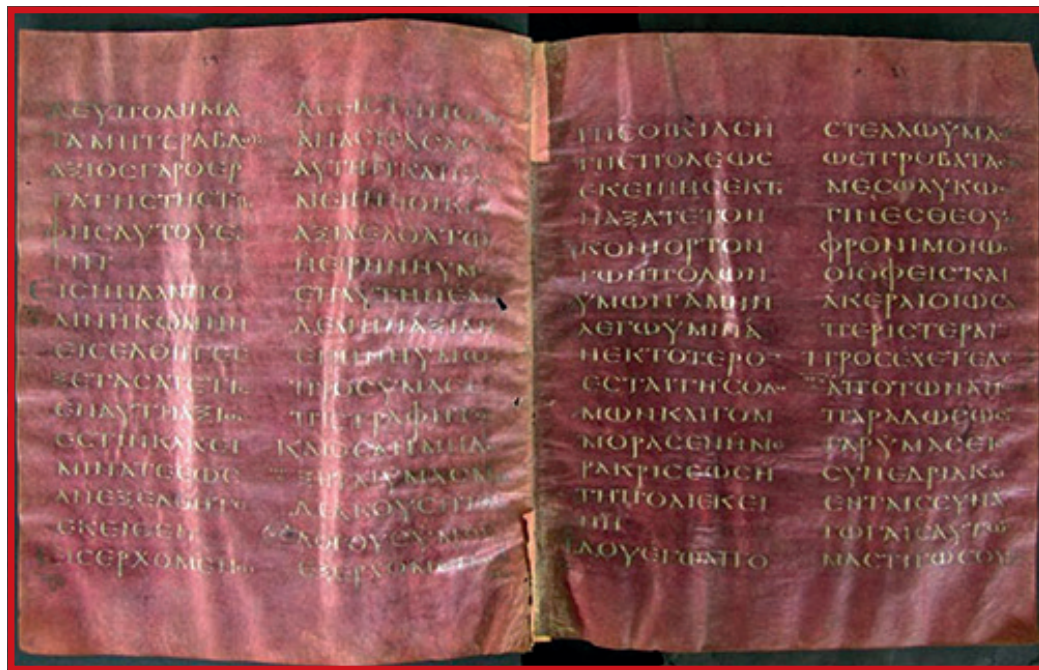 ΔΕΥΠΟΔΗΜΑ
ΤΑΜΗΤΕΡΑΒΔΟΝ
ΑΞΙΟϹΓΑΡΟΕΡ
ΓΑΤΗϹΤΗϹΤΡ
ΦΗϹΑΥΤΟΥΕ
ΤΙΝ
ΕΙϹΗΝΔΑΝΠΟ
ΛΙΝΗΚΩΜΗΝ
ΕΙϹΕΛΘΗΤΕΕ
ΞΕΤΑϹΑΤΕΤΙϹ
ΕΝΑΥΤΗΑΞΙΟϹ
ΕϹΤΙΝΚΑΚΕΙ
ΜΙΝΑΤΕΕΩϹ
ΑΝΕΞΕΛΘΗΤΕ
ΕΚΕΙΘΕΝ
ΕΙϹΕΡΧΟΜΕΝΟΙ
ΔΕΕΙϹΤΗΝΟΙΚΙ
ΑΝΑϹΠΑϹΑϹΘΕ
ΑΥΤΗΝΚΑΙΕΑΝ
ΜΕΝΗΗΟΙΚΙΑ
ΑΞΙΑΕΛΘΑΤΩ
ΗΕΙΡΗΝΗΥΜΩ
ΕΠΑΥΤΗΝΕΑΝ
ΔΕΜΗΗΑΞΙΑΗ
ΕΙΡΗΝΗΥΜΩΝ
ΠΡΟϹΥΜΑϹΕ
ΠΙϹΤΡΑΦΗΤΩ
ΚΑΙΟϹΕΑΝΜΗΔΕ
ΞΗΤΑΙΥΜΑϹΜΗ
ΔΕΑΚΟΥϹΗΤΟΥϹ
ΛΟΓΟΥϹΥΜΩΝ
ΕΞΕΡΧΟΜΕΝΟΙ
ΤΗϹΟΙΚΙΑϹΗ
ΤΗϹΠΟΛΕΩϹ
ΕΚΕΙΝΗϹΕΚΤΙ
ΝΑΞΑΤΕΤΟΝ
ΚΟΝΙΟΡΤΟΝ
ΤΩΝΠΟΔΩΝ
ΥΜΩΝΑΜΗΝ
ΛΕΓΩΫΜΙΝΑ
ΝΕΚΤΟΤΕΡΟΝ
ΕϹΤΑΙΓΗϹΟΔΟ
ΜΩΝΚΑΙΓΟΜ
ΜΟΡΑϹΕΝΗΜΕ
ΡΑΚΡΙϹΕΩϹΗ
ΤΗΠΟΛΙΕΚΕΙ
ΝΗ
ΙΔΟΥΕΓΩΑΠΟ
ϹΤΕΛΛΩΫΜΑϹ
ΩϹΠΡΟΒΑΤΑΕΝ
ΜΕϹΩΛΥΚΩΝ
ΓΙΝΕϹΘΕΟΥΝ
ΦΡΟΝΙΜΟΙΩϹ
ΟΙΟΦΕΙϹΚΑΙ
ΑΚΕΡΑΙΟΙΩϹΑΙ
ΠΕΡΙϹΤΕΡΑΙ
ΠΡΟϹΕΧΕΤΕΔΕ
ΑΠΟΤΩΝΑΝΩΝ
ΠΑΡΑΔΩϹΟΥϹΙ
ΓΑΡΥΜΑϹΕΙϹ
ϹΥΝΕΔΡΙΑΚΑΙ
ΕΝΤΑΙϹϹΥΝΑ
ΓΩΓΑΙϹΑΥΤΩΝ
ΜΑϹΤΙΓΩϹΟΥ